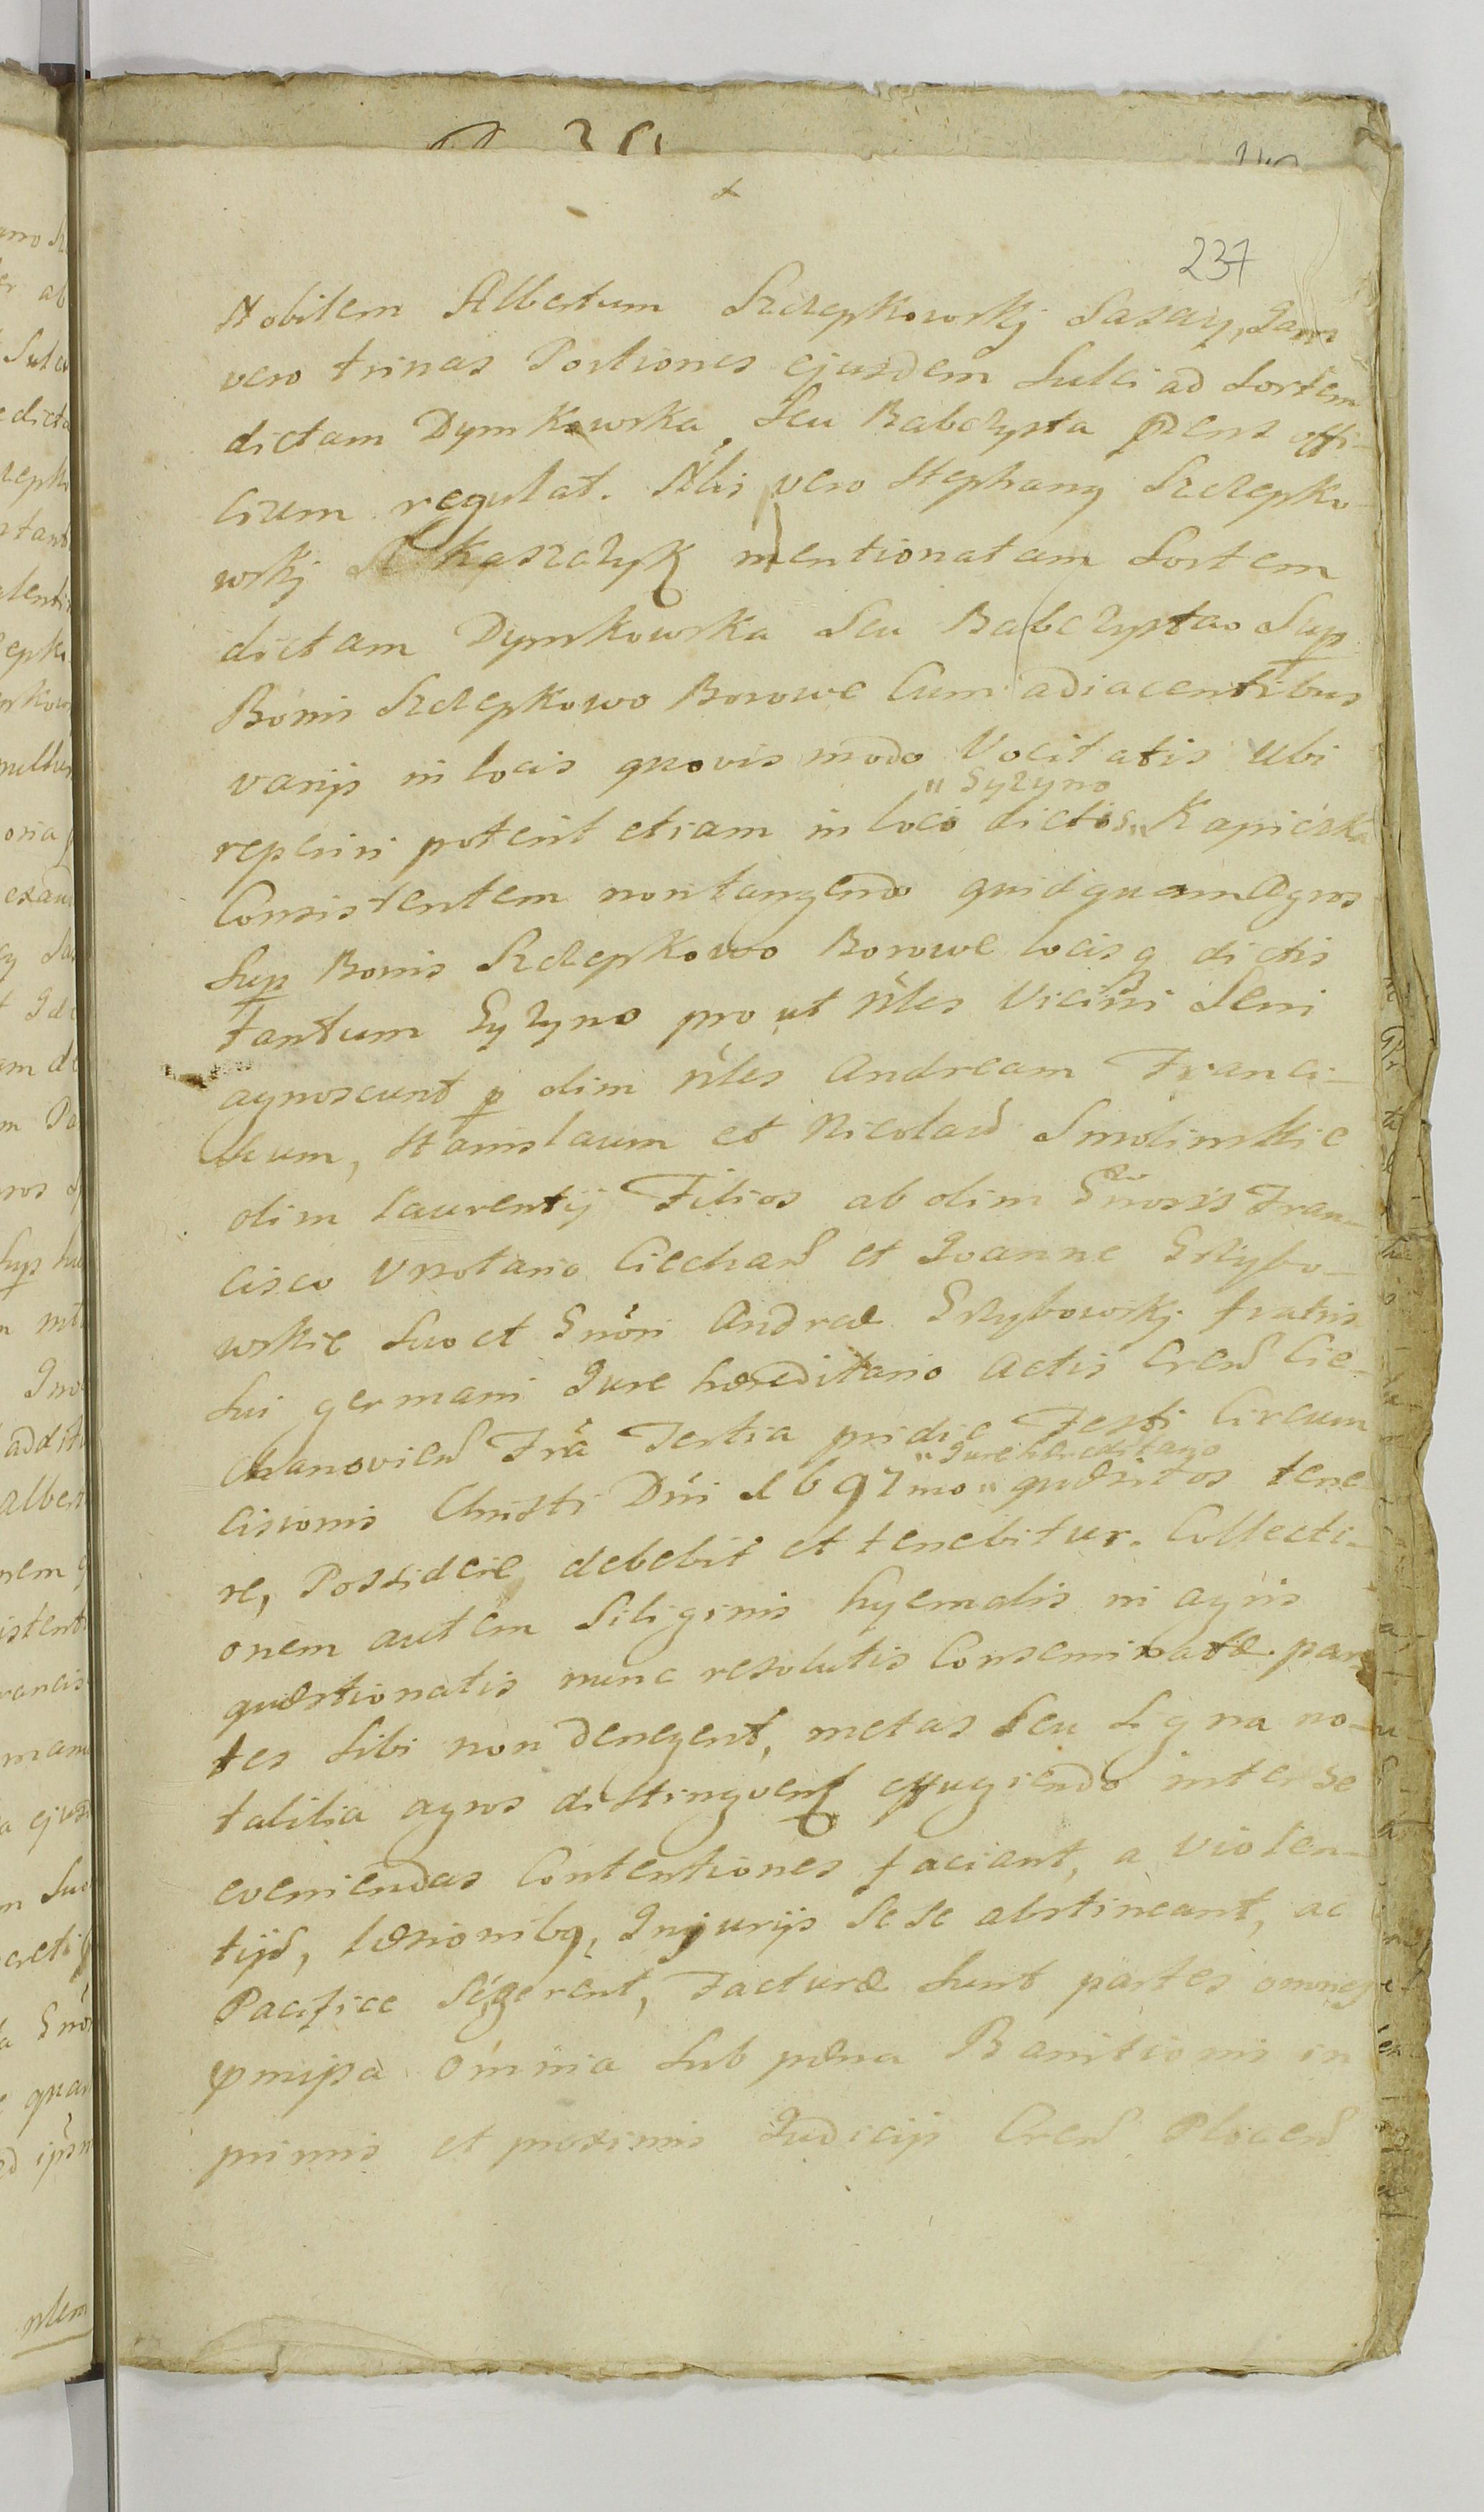 237
Nobilem Albertum Szczepkowskj Sasazy, Jam
vero trinas Portiones ejusdem Sulci ad Sortem
dictam Dymkowska Seu Babczysta pñens offi-
cium regulat. Nlis vero Stephany Szczepko-
wskj Kaszczyk mentionatam Sortem
dictam Dymkowska Seu Babczysta Sup
Bonis Szczepkowo Borowe Cum adiacentibus
varijs in locis quovis modo Vocitatis ubi
"Syzyno
reperiri poterit etiam in loco dictos" Kapiczka
Consistentem non tangendo quidquam Agros
Sup Bonis Szczepkowo Borowe locis q dictis
tantum Gyzyno pro ut Nles Vicini Seni
agnoscunt p olim Nles Andream Franci-
scum, Stanislaum et Nicolaum Smolinskie
olim Laurentij Filios ab olim Gñosis Fran-
cisco Vnotario Ciechan et Joanne Grzybo-
wskie Suo et Gñosi Andreæ Grzybowskj fratris
Sui germani Jure hæreditario Actis Cren Cie-
chanovien Fra Tertia pridie Festi Circum
"Jure hæreditario
cisionis Christi Dni 1697mo" quæsitos tene
re, Possidere debebit et tenebitur. Collecti-
onem autem Siliginis hyemalis in agris
quæstionatis nunc resolutis Conseminatæ par
tes Sibi non denegent, metas Seu Signa no-
tabilia agros distingvent effugiendo inter se
eveniendas Contentiones faciant, a Violen-
tijs, læsionibq, Injurijs Sese abstineant, ac
Pacifice Se gerent, Facturæ Sunt partes omnes
pmissa omnia Sub pæna Banitionis in
primis et proximis Judicijs Cren Plocen